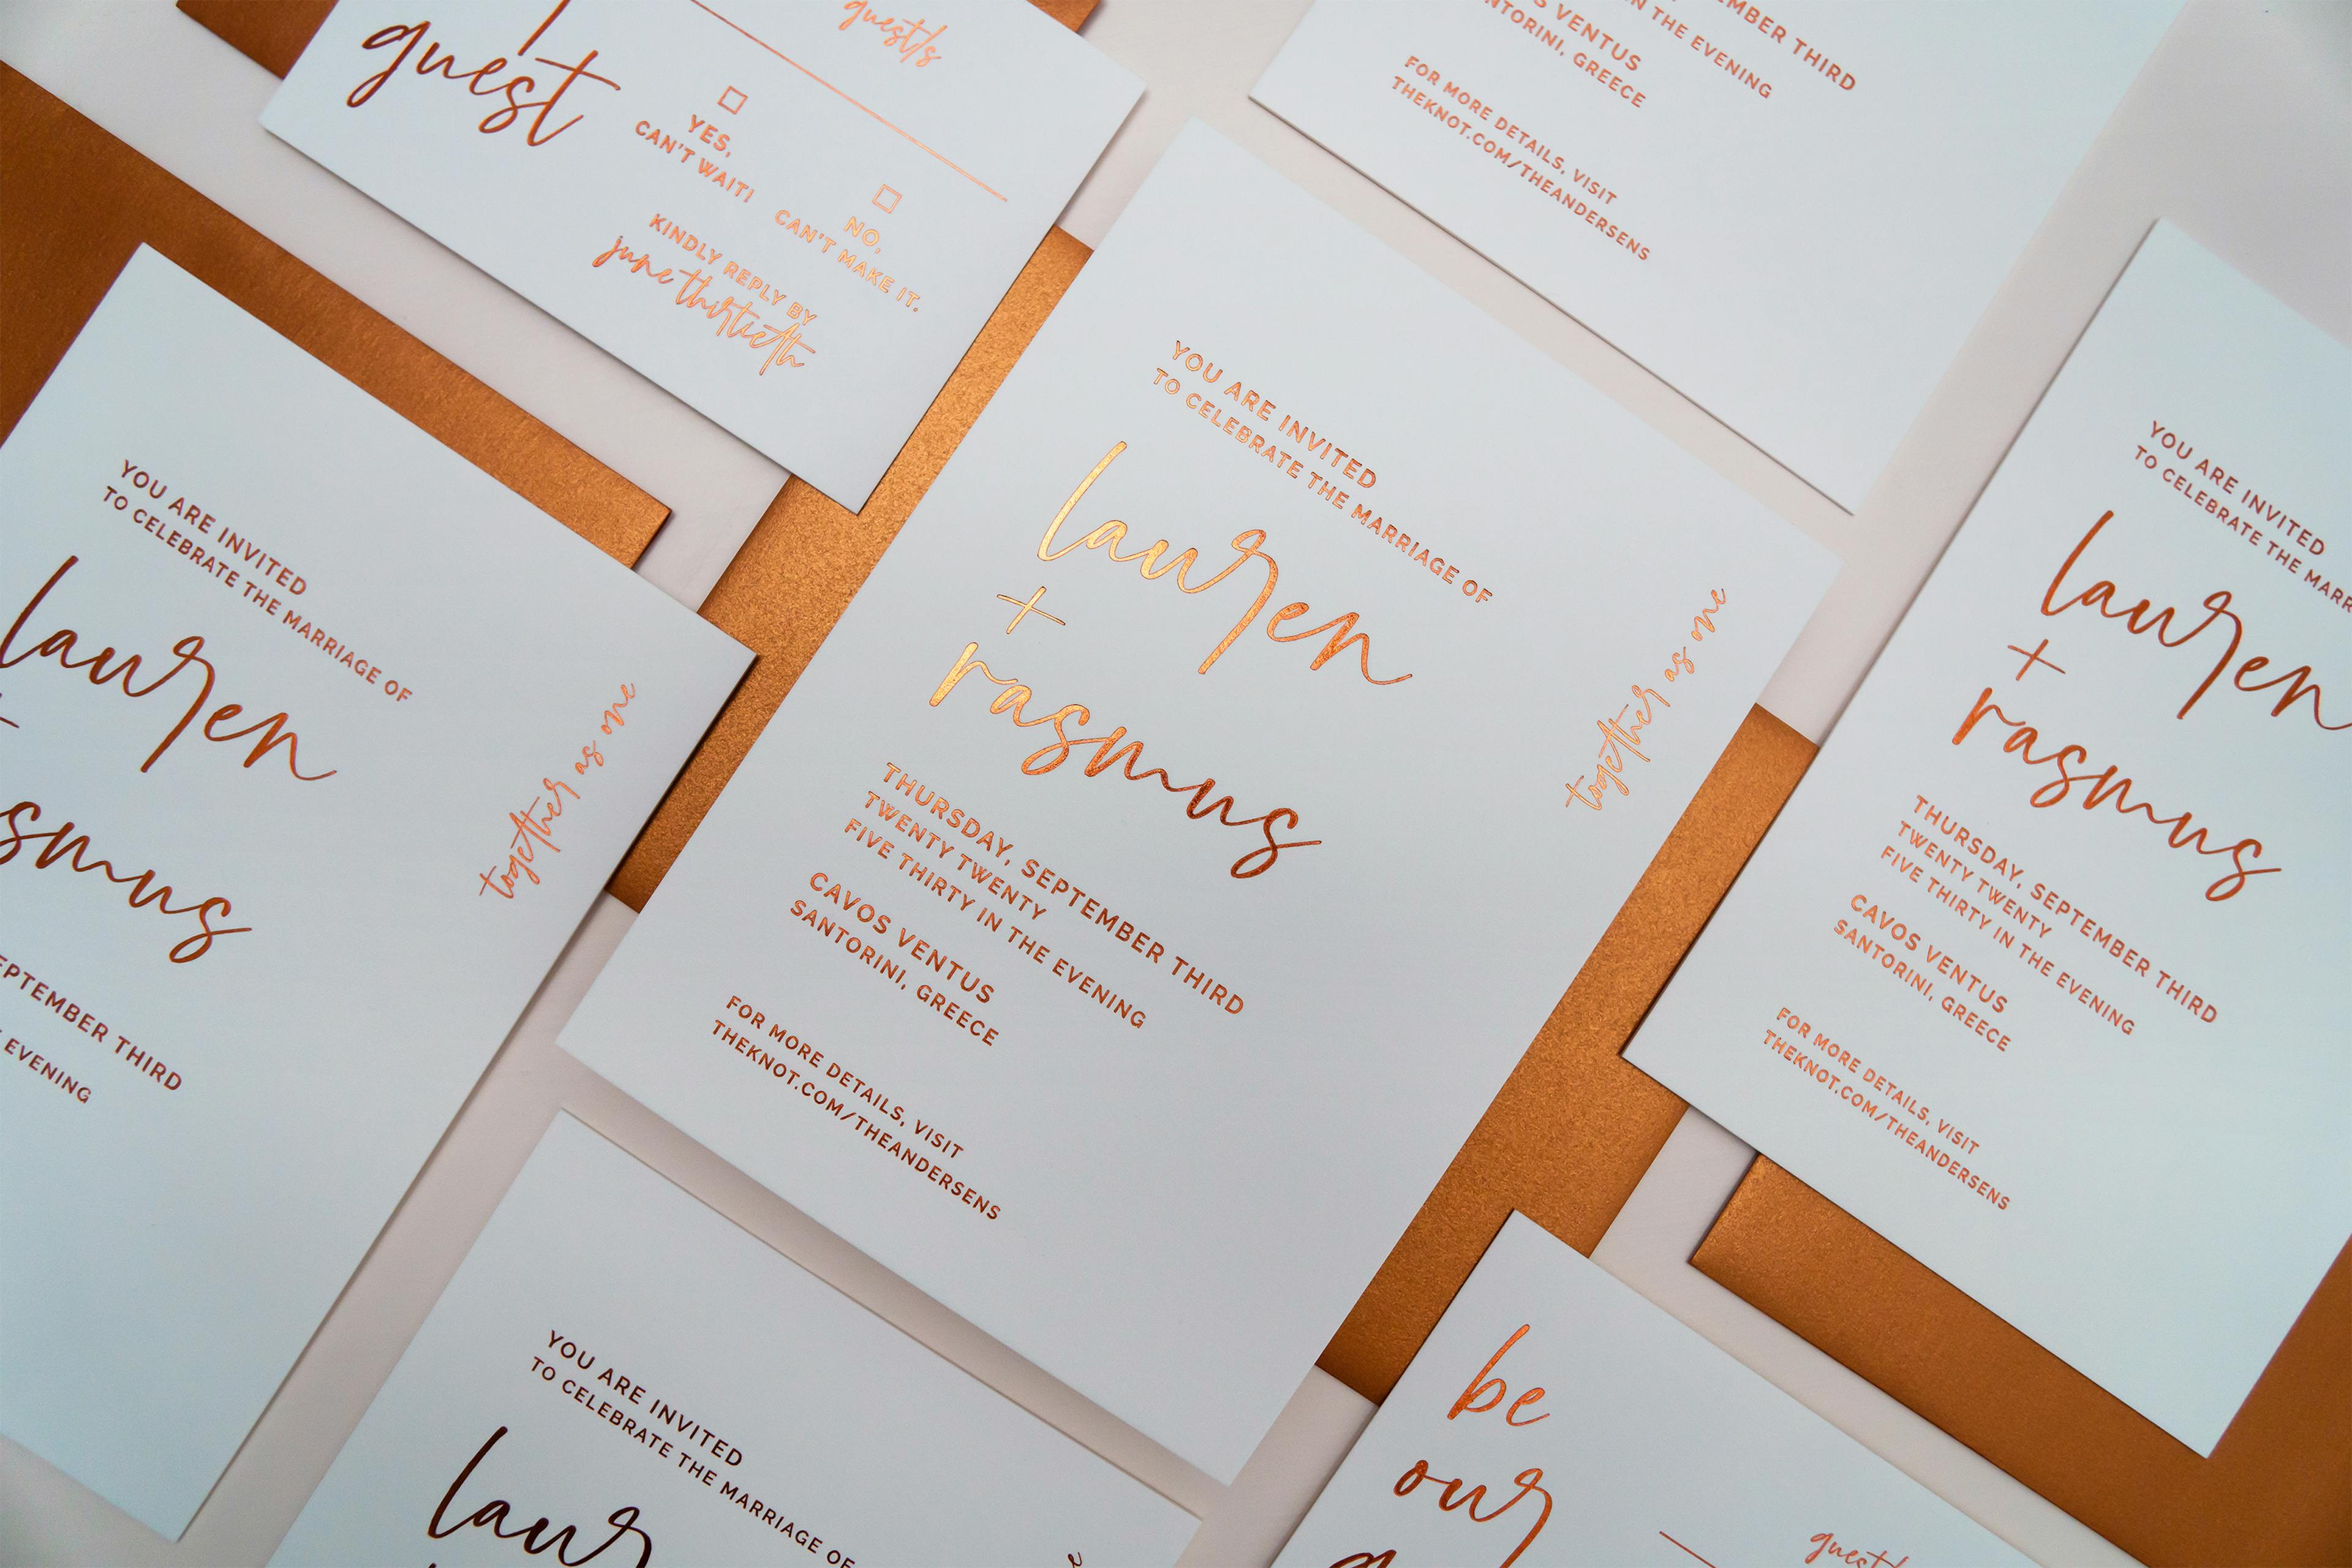 guest
guest/s
YES,
CAN'T WAIT!
NO,
CAN'T MAKE IT.
KINDLY REPLY BY
june thirtieth
SEPTEMBER THIRD
IN THE EVENING
VENTUS
SANTORINI, GREECE
FOR MORE DETAILS, VISIT
THEKNOT.COM/THEANDERSENS
YOU ARE INVITED
TO CELEBRATE THE MARRIAGE OF
lauren
+
SEPTEMBER THIRD
EVENING
together as one
YOU ARE INVITED
TO CELEBRATE THE MARRIAGE OF
lauren
+
rasmus
THURSDAY, SEPTEMBER THIRD
TWENTY TWENTY
FIVE THIRTY IN THE EVENING
CAVOS VENTUS
SANTORINI, GREECE
FOR MORE DETAILS, VISIT
THEKNOT.COM/THEANDERSENS
together as one
YOU ARE INVITED
TO CELEBRATE THE
lauren
+
rasmus
THURSDAY, SEPTEMBER THIRD
TWENTY TWENTY
FIVE THIRTY IN THE EVENING
CAVOS VENTUS
SANTORINI, GREECE
FOR MORE DETAILS, VISIT
THEKNOT.COM/THEANDERSENS
YOU ARE INVITED
TO CELEBRATE THE MARRIAGE OF
be
our